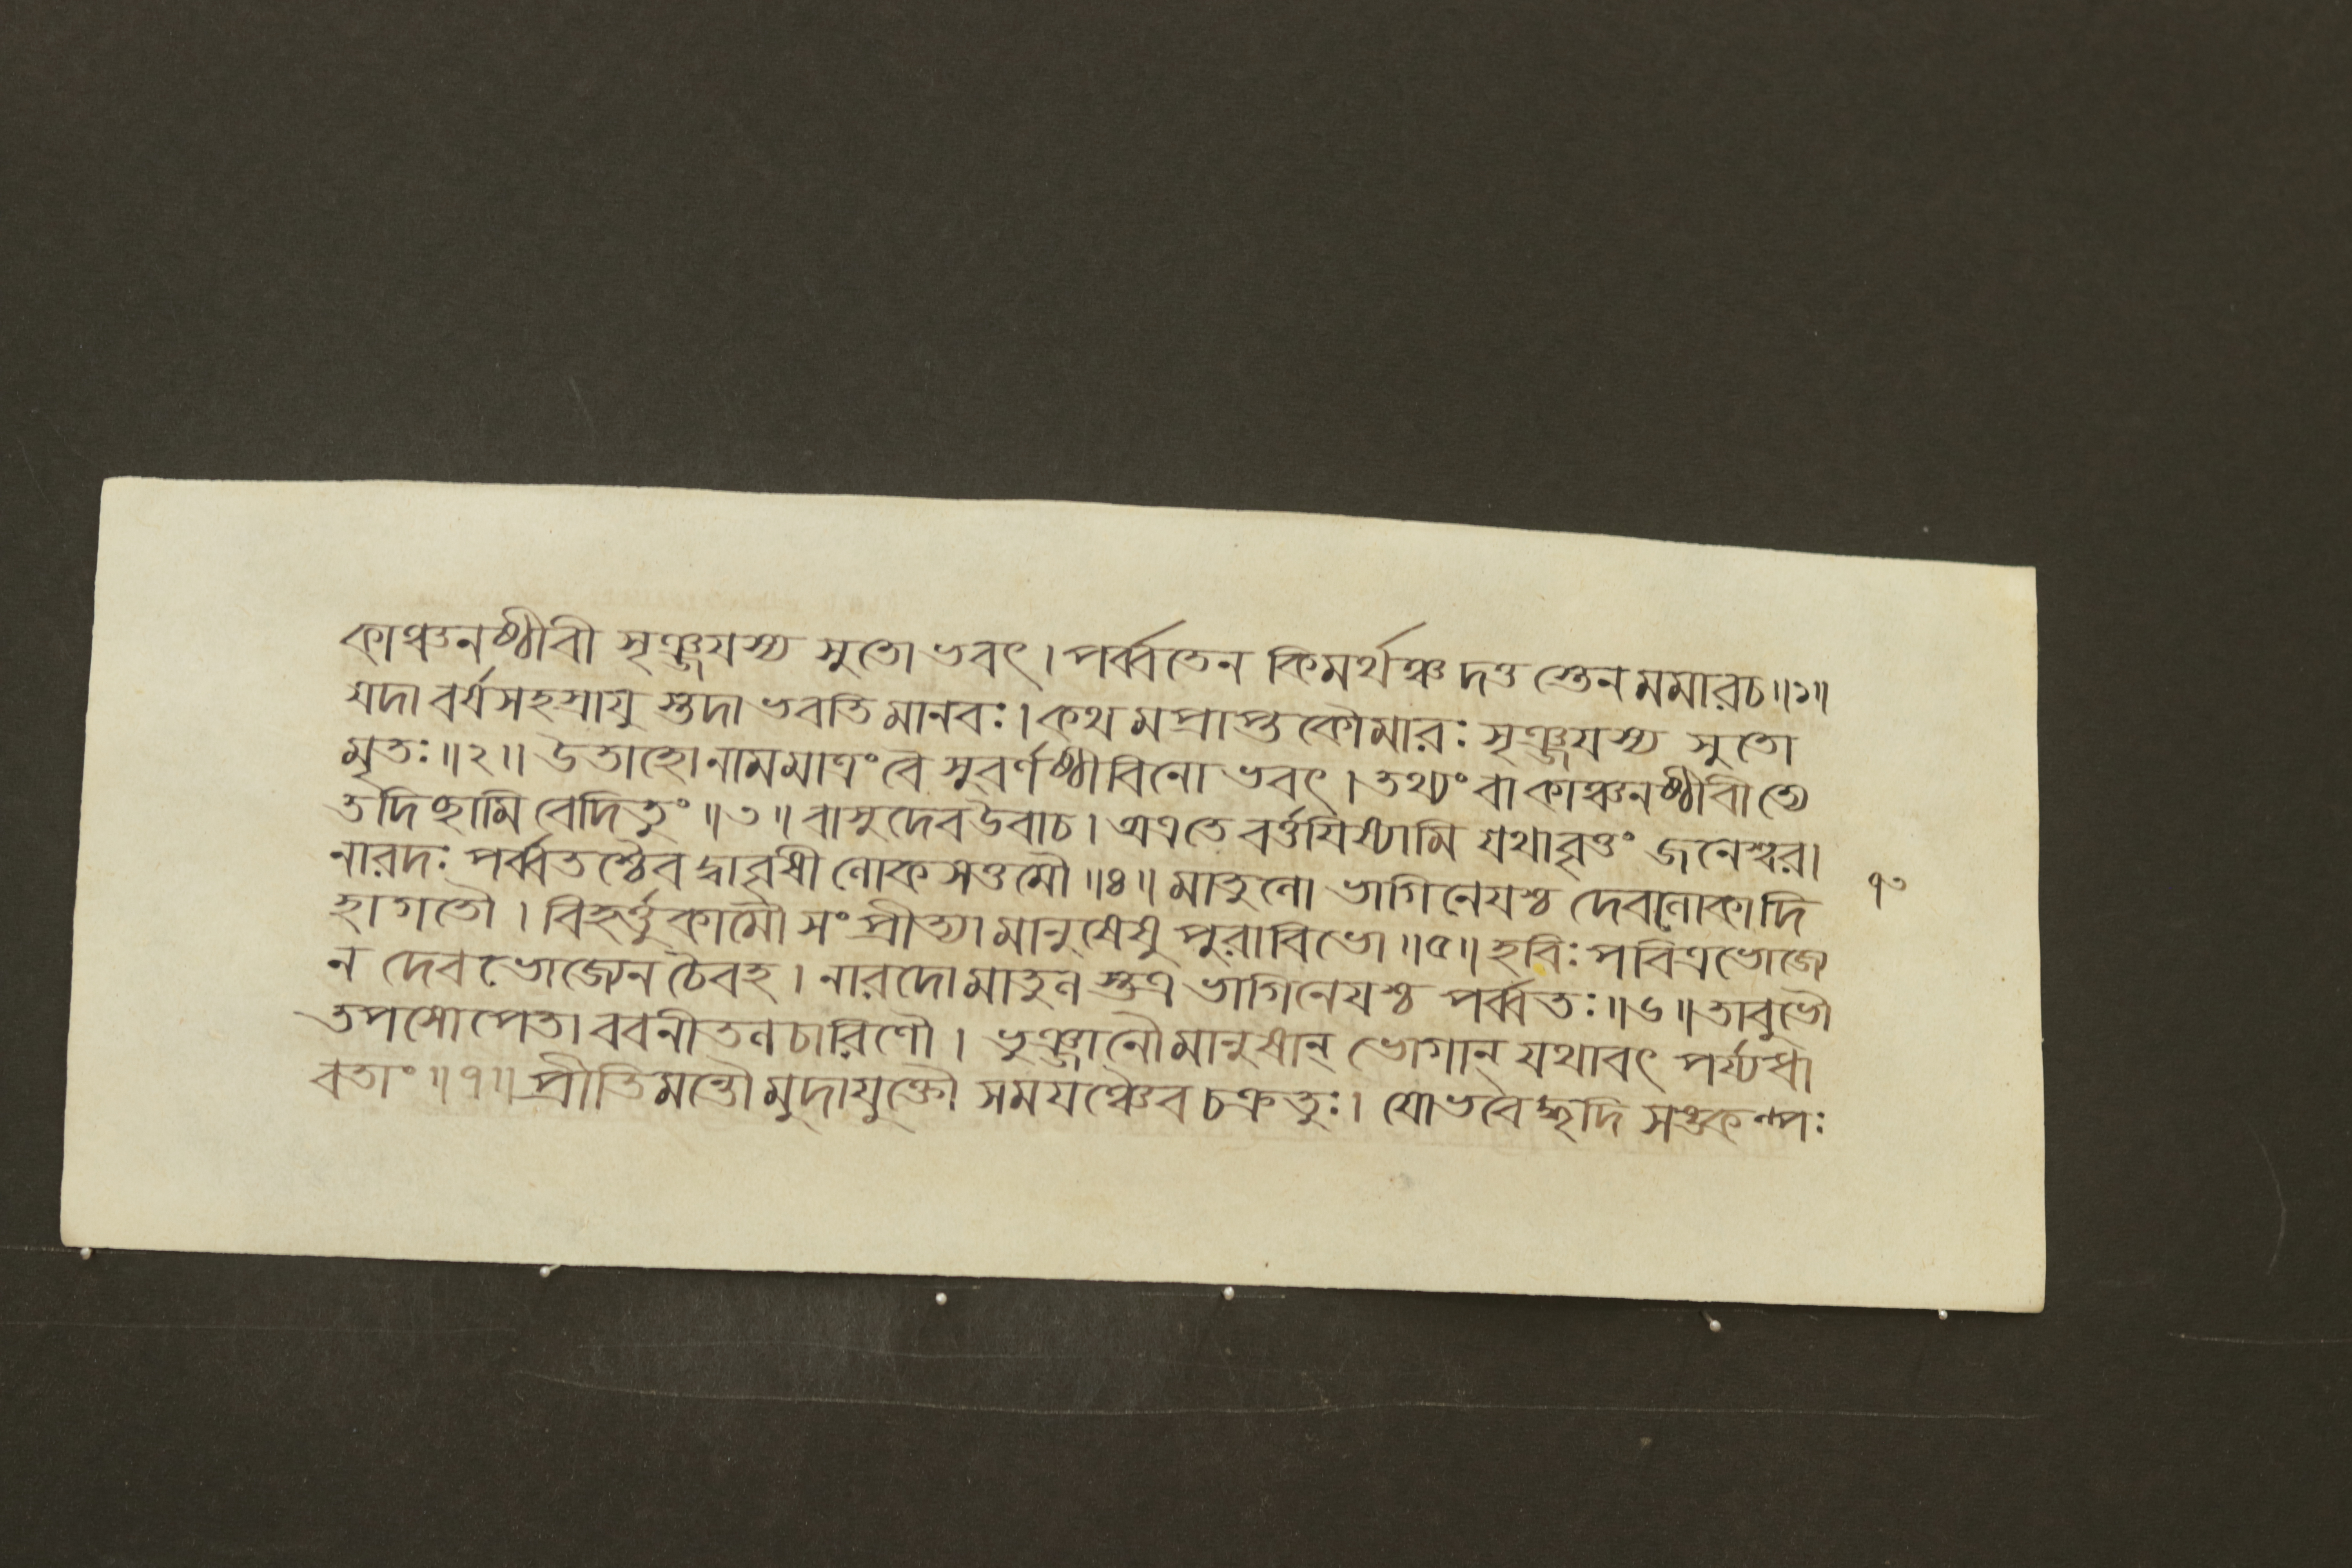 কাঞ্চনষ্ঠীবী সৃঞ্জযস্য সুতো ভবৎ । পর্ব্বতেন কিমর্থঞ্চ দত্ত স্তেন মমারচ ॥১॥
যদা বর্ষসহস্রাযু স্তদা ভবতি মানবঃ । কথ মপ্রাপ্ত কৌমারঃ সৃঞ্জযস্য সুতো
মৃতঃ ॥২॥ উতাহো নামমাত্রং বৈ সুবর্ণষ্ঠীবিনো ভবৎ । তথ্যং বা কাঞ্চনষ্ঠীবীত্যে
তদিচ্ছামি বেদিতুং ॥৩॥ বাসুদেব উবাচ । অত্রতে বর্ত্তযিষ্যামি যথাবৃত্তং জনেশ্বর ।
নারদঃ পর্ব্বতশ্চৈব দ্বাবৃষী লোকসত্তমৌ ॥৪॥ মাতুলো ভাগিনেযশ্চ দেবলোকাদি
হাগতৌ । বিহর্ত্তুকামৌ সংপ্রীত্যা মানুষেষু পুরাবিভো ॥৫॥ হবিঃ পবিত্রভোজ্যে
ন দেবভোজ্যেন চৈবহ । নারদো মাতুল স্তত্র ভাগিনেযশ্চ পর্ব্বতঃ ॥৬॥ তাবুভৌ
তপসোপেতা ববনীতলচারিণৌ । ভুঞ্জানৌ মানুষান্ ভোগান্ যথাবৎ পর্য্যধা
বতাং ॥৭॥ প্রীতিমন্তৌ মুদাযুক্তৌ সমযঞ্চৈব চক্রতুঃ । যো ভবেদ্ধৃদি সঙ্কল্পঃ
৭৩